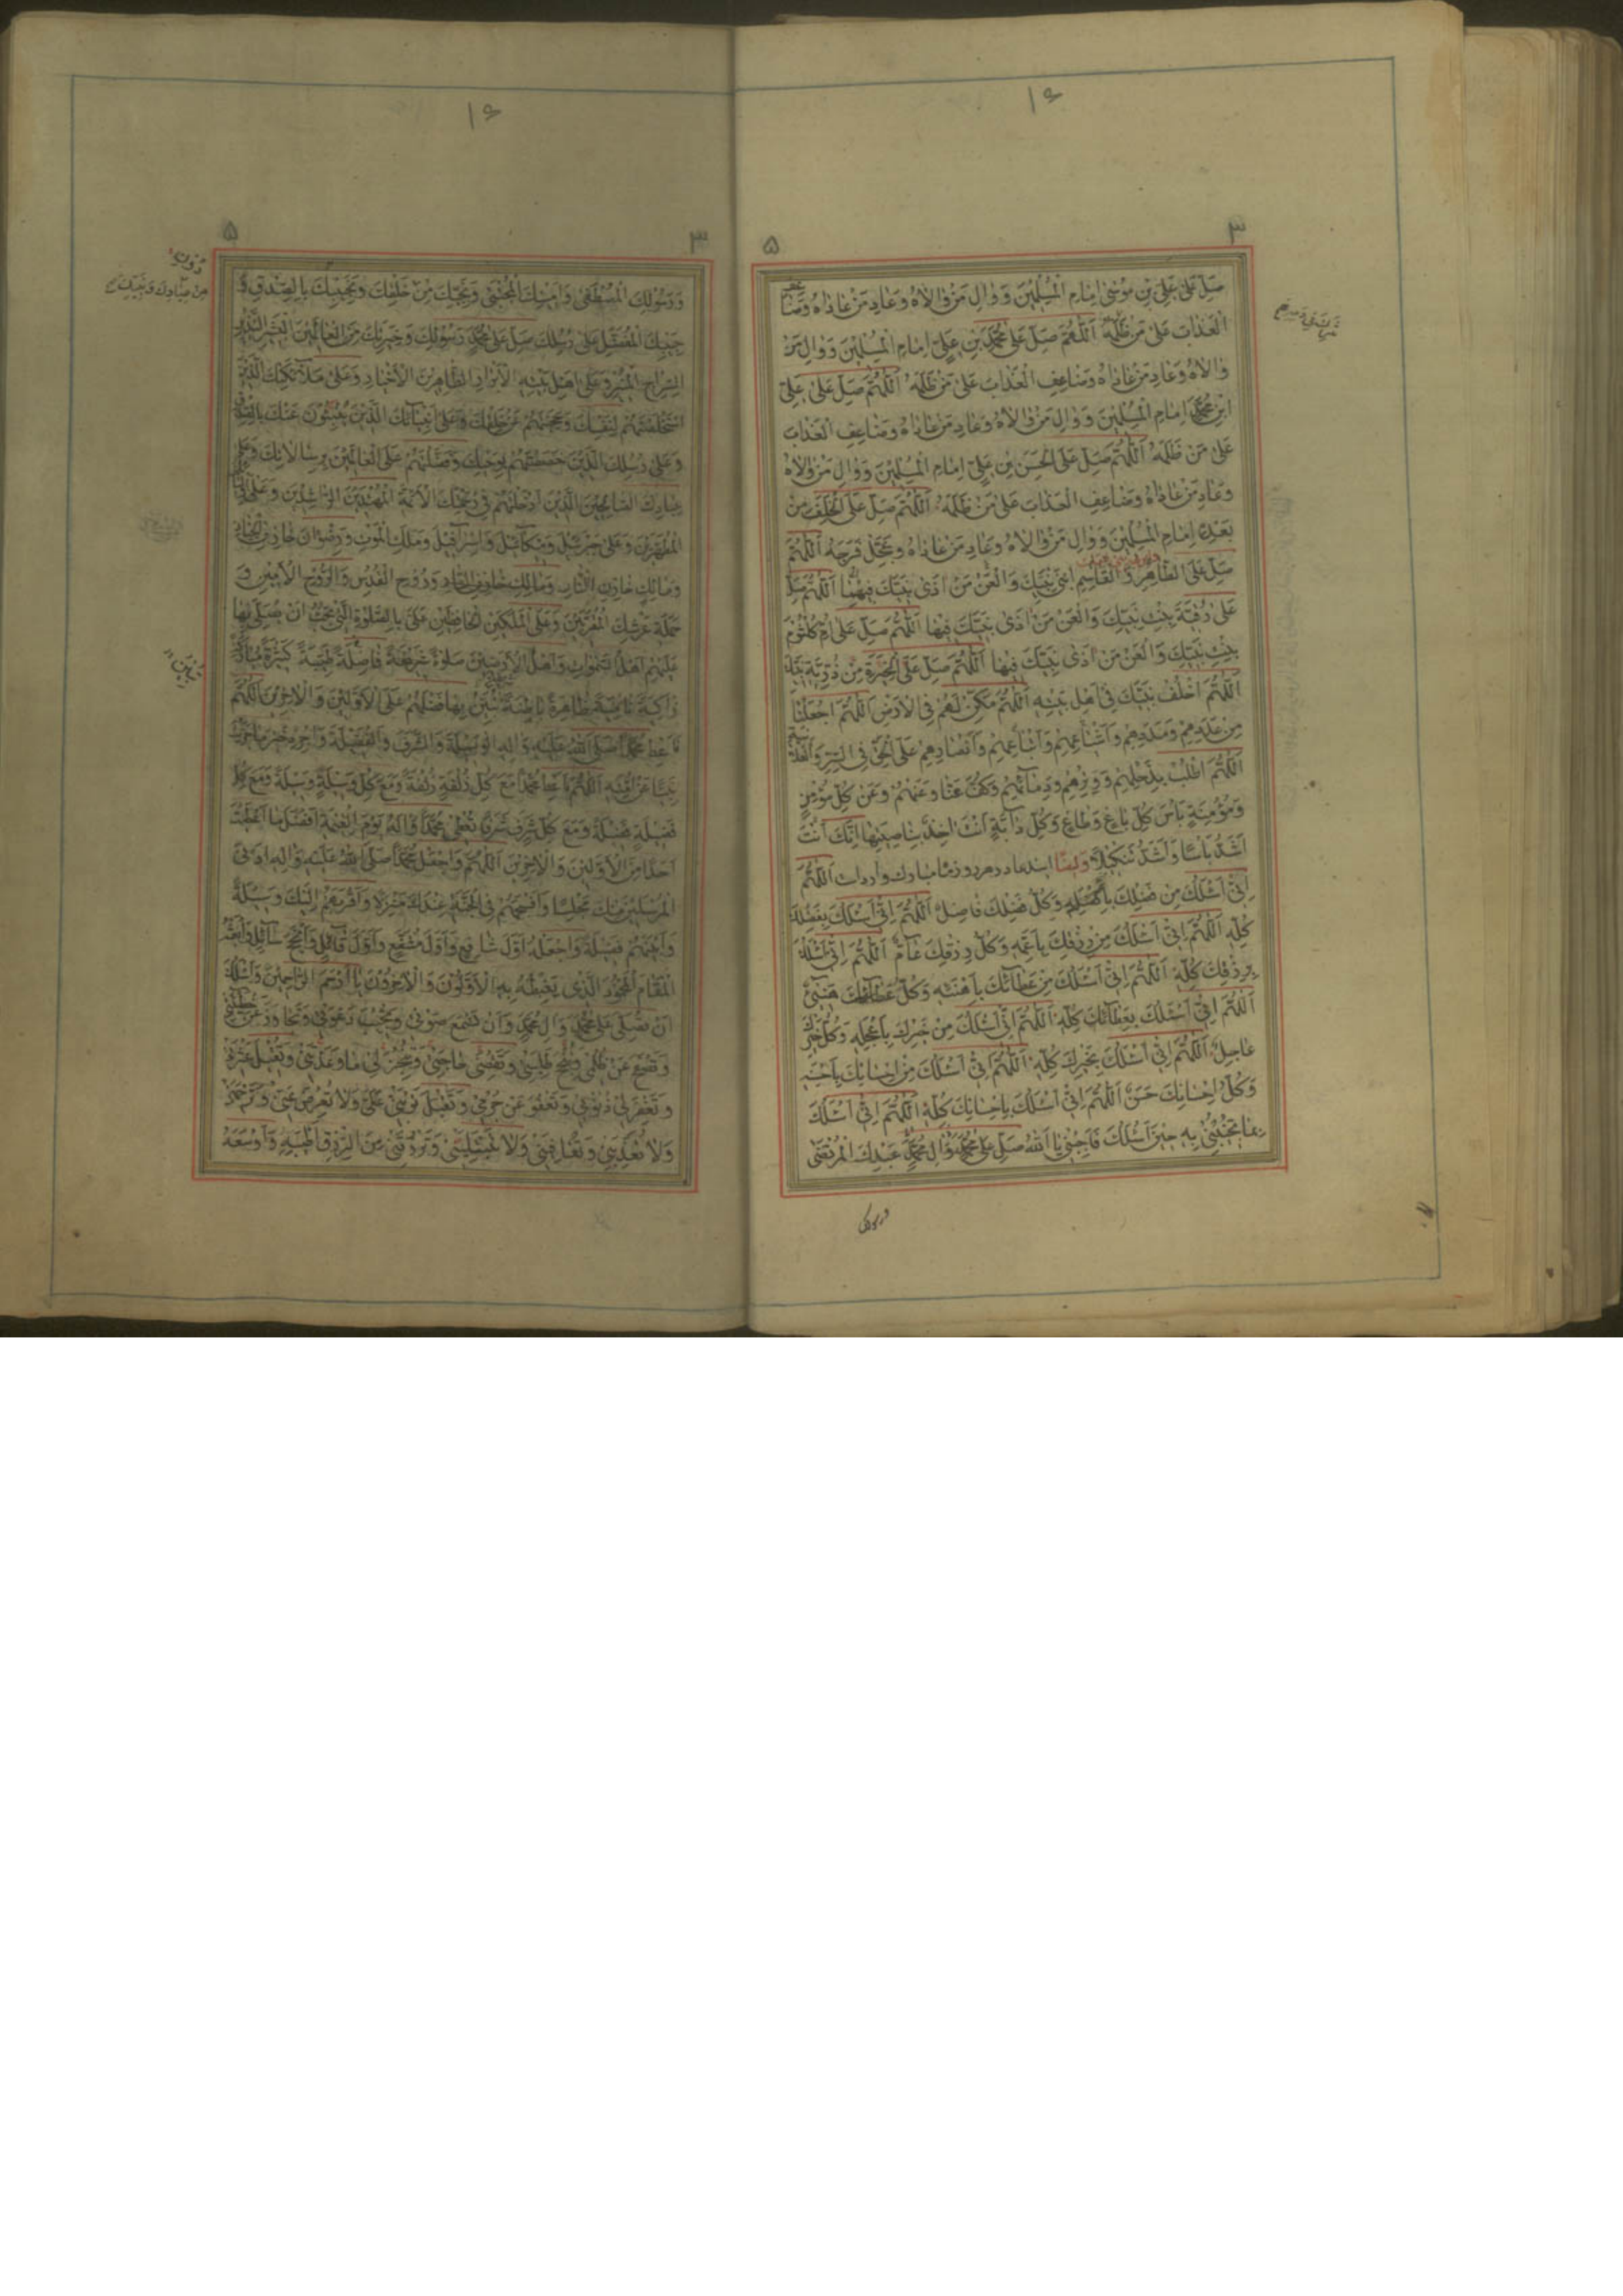 ۱۶
۳
۵
صَلِّ عَلٰى عَلِيِّ بْنِ مُوسٰى اِمَامِ الْمُسْلِمٖينَ وَوَالِ مَنْ وَالَاهُ وَعَادِ مَنْ عَادَاهُ وَضَاعِفِ
الْعَذَابَ عَلٰى مَنْ ظَلَمَهُ اَللّٰهُمَّ صَلِّ عَلٰى مُحَمَّدِ بْنِ عَلِيٍّ اِمَامِ الْمُسْلِمٖينَ وَوَالِ مَنْ
وَالَاهُ وَعَادِ مَنْ عَادَاهُ وَضَاعِفِ الْعَذَابَ عَلٰى مَنْ ظَلَمَهُ اَللّٰهُمَّ صَلِّ عَلٰى عَلِيِّ
ابْنِ مُحَمَّدٍ اِمَامِ الْمُسْلِمٖينَ وَوَالِ مَنْ وَالَاهُ وَعَادِ مَنْ عَادَاهُ وَضَاعِفِ الْعَذَابَ
عَلٰى مَنْ ظَلَمَهُ اَللّٰهُمَّ صَلِّ عَلَى الْحَسَنِ بْنِ عَلِيٍّ اِمَامِ الْمُسْلِمٖينَ وَوَالِ مَنْ وَالَاهُ
وَعَادِ مَنْ عَادَاهُ وَضَاعِفِ الْعَذَابَ عَلٰى مَنْ ظَلَمَهُ اَللّٰهُمَّ صَلِّ عَلَى الْخَلَفِ مِنْ
بَعْدِهِ اِمَامِ الْمُسْلِمٖينَ وَوَالِ مَنْ وَالَاهُ وَعَادِ مَنْ عَادَاهُ وَعَجِّلْ فَرَجَهُ اَللّٰهُمَّ
صَلِّ عَلَى الطَّاهِرِ وَالْقَاسِمِ ابْنَيْ نَبِيِّكَ وَالْعَنْ مَنْ اٰذٰى نَبِيَّكَ فٖيهِمَا اَللّٰهُمَّ صَلِّ
عَلٰى رُقَيَّةَ بِنْتِ نَبِيِّكَ وَالْعَنْ مَنْ اٰذٰى نَبِيَّكَ فٖيهَا اَللّٰهُمَّ صَلِّ عَلٰى اُمِّ كُلْثُومَ
بِنْتِ نَبِيِّكَ وَالْعَنْ مَنْ اٰذٰى نَبِيَّكَ فٖيهَا اَللّٰهُمَّ صَلِّ عَلَى الْخِيَرَةِ مِنْ ذُرِّيَّةِ نَبِيِّكَ
اَللّٰهُمَّ اخْلُفْ نَبِيَّكَ فٖي اَهْلِ بَيْتِهِ اَللّٰهُمَّ مَكِّنْ لَهُمْ فِي الْاَرْضِ اَللّٰهُمَّ اجْعَلْنَا
مِنْ عَدَدِهِمْ وَمَدَدِهِمْ وَاَشْيَاعِهِمْ وَاَتْبَاعِهِمْ وَاَنْصَارِهِمْ عَلَى الْحَقِّ فِي السِّرِّ وَالْعَلَانِيَةِ
اَللّٰهُمَّ اطْلُبْ بِذَحْلِهِمْ وَوِتْرِهِمْ وَدِمَائِهِمْ وَكُفَّ عَنَّا وَعَنْهُمْ وَعَنْ كُلِّ مُؤْمِنٍ
وَمُؤْمِنَةٍ بَاْسَ كُلِّ بَاغٍ وَطَاغٍ وَكُلِّ دَابَّةٍ اَنْتَ اٰخِذٌ بِنَاصِيَتِهَا اِنَّكَ اَنْتَ
اَشَدُّ بَاْسًا وَاَشَدُّ تَنْكٖيلًا وَايضًا ايندعا در هر روز ماه مبارك وارد است اَللّٰهُمَّ
اِنّٖي اَسْئَلُكَ مِنْ فَضْلِكَ بِاَفْضَلِهِ وَكُلُّ فَضْلِكَ فَاضِلٌ اَللّٰهُمَّ اِنّٖي اَسْئَلُكَ بِفَضْلِكَ
كُلِّهِ اَللّٰهُمَّ اِنّٖي اَسْئَلُكَ مِنْ رِزْقِكَ بِاَعَمِّهِ وَكُلُّ رِزْقِكَ عَامٌّ اَللّٰهُمَّ اِنّٖي اَسْئَلُكَ
بِرِزْقِكَ كُلِّهِ اَللّٰهُمَّ اِنّٖي اَسْئَلُكَ مِنْ عَطَائِكَ بِاَهْنَئِهِ وَكُلُّ عَطَائِكَ هَنٖيءٌ
اَللّٰهُمَّ اِنّٖي اَسْئَلُكَ بِعَطَائِكَ كُلِّهِ اَللّٰهُمَّ اِنّٖي اَسْئَلُكَ مِنْ خَيْرِكَ بِاَعْجَلِهِ وَكُلُّ خَيْرِكَ
عَاجِلٌ اَللّٰهُمَّ اِنّٖي اَسْئَلُكَ بِخَيْرِكَ كُلِّهِ اَللّٰهُمَّ اِنّٖي اَسْئَلُكَ مِنْ اِحْسَانِكَ بِاَحْسَنِهِ
وَكُلُّ اِحْسَانِكَ حَسَنٌ اَللّٰهُمَّ اِنّٖي اَسْئَلُكَ بِاِحْسَانِكَ كُلِّهِ اَللّٰهُمَّ اِنّٖي اَسْئَلُكَ
بِمَا تُجٖيبُنٖي بِهِ حٖينَ اَسْئَلُكَ فَاَجِبْنٖي يَا اَللّٰهُ صَلِّ عَلٰى مُحَمَّدٍ وَاٰلِ مُحَمَّدٍ عَبْدِكَ الْمُرْتَضٰى
۱۶
۳
۵
وَرَسُولِكَ الْمُصْطَفٰى وَاَمٖينِكَ الْمُجْتَبٰى وَنَجِيِّكَ مِنْ خَلْقِكَ وَنَجٖيبِكَ بِالصِّدْقِ وَ
حَبٖيبِكَ الْمُفَضَّلِ عَلٰى رُسُلِكَ صَلِّ عَلٰى مُحَمَّدٍ رَسُولِكَ وَخِيَرَتِكَ مِنَ الْعَالَمٖينَ الْبَشٖيرِ النَّذٖيرِ
السِّرَاجِ الْمُنٖيرِ وَعَلٰى اَهْلِ بَيْتِهِ الْاَبْرَارِ الطَّاهِرٖينَ الْاَخْيَارِ وَعَلٰى مَلَائِكَتِكَ الَّذٖينَ
اسْتَخْلَصْتَهُمْ لِنَفْسِكَ وَحَجَبْتَهُمْ عَنْ خَلْقِكَ وَعَلٰى اَنْبِيَائِكَ الَّذٖينَ يُنْبِئُونَ عَنْكَ بِالصِّدْقِ
وَعَلٰى رُسُلِكَ الَّذٖينَ خَصَصْتَهُمْ بِوَحْيِكَ وَفَضَّلْتَهُمْ عَلَى الْعَالَمٖينَ بِرِسَالَاتِكَ وَعَلٰى
عِبَادِكَ الصَّالِحٖينَ الَّذٖينَ اَدْخَلْتَهُمْ فٖي رَحْمَتِكَ الْاَئِمَّةِ الْمُهْتَدٖينَ الرَّاشِدٖينَ وَ
الْمُطَهَّرٖينَ وَعَلٰى جَبْرَئٖيلَ وَمٖيكَائٖيلَ وَاِسْرَافٖيلَ وَمَلَكِ الْمَوْتِ وَرِضْوَانَ خَازِنِ الْجِنَانِ
وَمَالِكٍ خَازِنِ النَّارِ وَرُوحِ الْقُدُسِ وَالرُّوحِ الْاَمٖينِ وَ
حَمَلَةِ عَرْشِكَ الْمُقَرَّبٖينَ وَعَلَى الْمَلَكَيْنِ الْحَافِظَيْنِ عَلَيَّ بِالصَّلٰوةِ الَّتٖي تُحِبُّ اَنْ يُصَلِّيَ بِهَا
عَلَيْهِمْ اَهْلُ السَّمٰوَاتِ وَاَهْلُ الْاَرَضٖينَ صَلٰوةً فَاضِلَةً طَيِّبَةً كَثٖيرَةً مُبَارَكَةً
زَاكِيَةً نَامِيَةً ظَاهِرَةً بَاطِنَةً تُبَيِّنُ بِهَا فَضْلَهُمْ عَلَى الْاَوَّلٖينَ وَالْاٰخِرٖينَ اَللّٰهُمَّ
فَاَعْطِ مُحَمَّدًا صَلَّى اللهُ عَلَيْهِ وَاٰلِهِ الْوَسٖيلَةَ وَالشَّرَفَ وَالْفَضٖيلَةَ وَاجْزِهِ خَيْرَ مَا جَزَيْتَ
نَبِيًّا عَنْ اُمَّتِهِ اَللّٰهُمَّ فَاَعْطِ مُحَمَّدًا مَعَ كُلِّ زُلْفَةٍ زُلْفَةً وَمَعَ كُلِّ وَسٖيلَةٍ وَسٖيلَةً وَمَعَ كُلِّ
فَضٖيلَةٍ فَضٖيلَةً وَمَعَ كُلِّ شَرَفٍ شَرَفًا تُعْطٖي مُحَمَّدًا وَاٰلَهُ يَوْمَ الْقِيٰمَةِ اَفْضَلَ مَا اَعْطَيْتَ
اَحَدًا مِنَ الْاَوَّلٖينَ وَالْاٰخِرٖينَ اَللّٰهُمَّ وَاجْعَلْ مُحَمَّدًا صَلَّى اللهُ عَلَيْهِ وَاٰلِهِ اَدْنَى
الْمُرْسَلٖينَ مِنْكَ مَجْلِسًا وَاَفْسَحَهُمْ فِي الْجَنَّةِ عِنْدَكَ مَنْزِلًا وَاَقْرَبَهُمْ اِلَيْكَ وَسٖيلَةً
وَاَبْيَنَهُمْ فَضٖيلَةً وَاجْعَلْهُ اَوَّلَ شَافِعٍ وَاَوَّلَ مُشَفَّعٍ وَاَوَّلَ قَائِلٍ وَاَنْجَحَ سَائِلٍ وَابْعَثْهُ
الْمَقَامَ الْمَحْمُودَ الَّذٖي يَغْبِطُهُ بِهِ الْاَوَّلُونَ وَالْاٰخِرُونَ يَا اَرْحَمَ الرَّاحِمٖينَ وَاَسْئَلُكَ
اَنْ تُصَلِّيَ عَلٰى مُحَمَّدٍ وَاٰلِ مُحَمَّدٍ وَاَنْ تَسْمَعَ صَوْتٖي وَتُجٖيبَ دَعْوَتٖي وَتَجَاوَزَ عَنْ خَطٖيئَتٖي
وَتَصْفَحَ عَنْ ظُلْمٖي وَتُنْجِحَ طَلِبَتٖي وَتَقْضِيَ حَاجَتٖي وَتُنْجِزَ لٖي مَا وَعَدْتَنٖي وَتُقٖيلَ عَثْرَتٖي
وَتَغْفِرَ لٖي ذُنُوبٖي وَتَعْفُوَ عَنْ جُرْمٖي وَتُقْبِلَ عَلَيَّ وَلَا تُعْرِضَ عَنّٖي وَتَرْحَمَنٖي
وَلَا تُعَذِّبَنٖي وَتُعَافِيَنٖي وَلَا تَبْتَلِيَنٖي وَتَرْزُقَنٖي مِنَ الرِّزْقِ اَطْيَبَهُ وَاَوْسَعَهُ